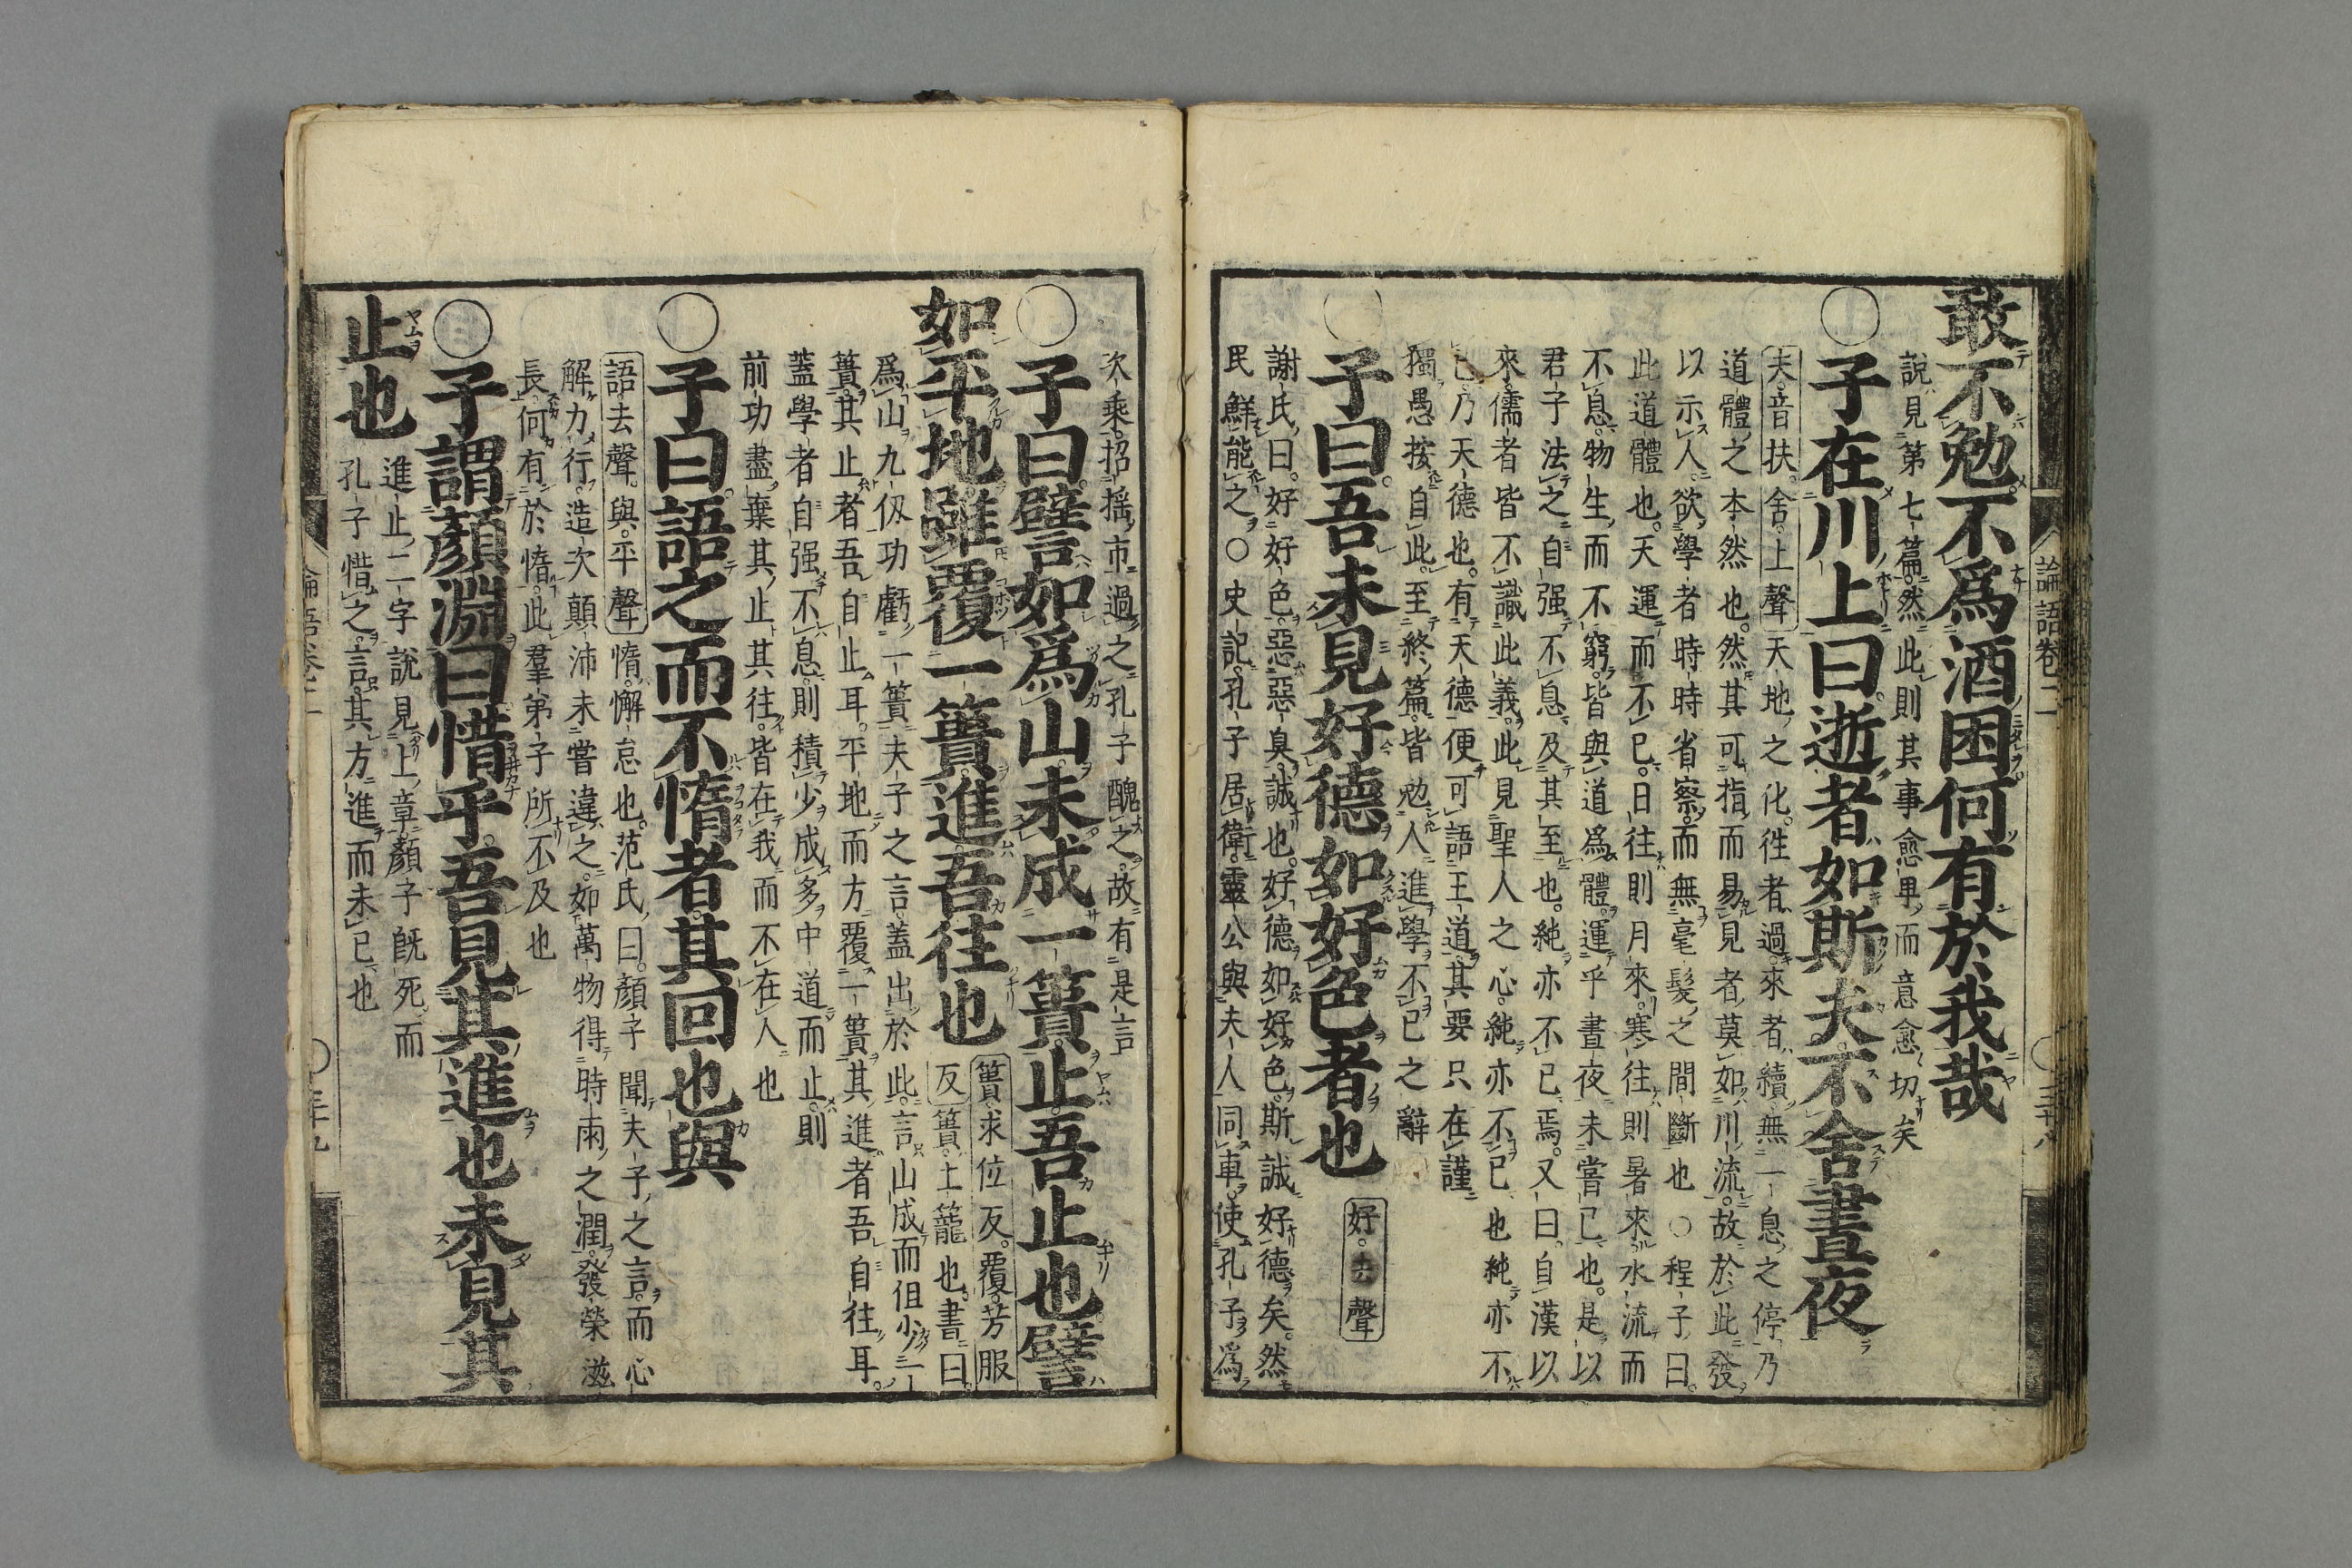 論語卷二
三十八
敢不勉不爲酒困何有於我哉
說見第七篇然此則其事愈卑而意愈切矣
○子在川上曰逝者如斯夫不舍晝夜
夫音扶舍上聲天地之化徃者過來者續無一息之停乃
道體之本然也然其可指而易見者莫如川流故於此發
以示人欲學者時時省察而無毫髮之間斷也○程子曰
此道體也天運而不已日往則月來寒往則暑來水流而
不息物生而不窮皆與道爲體運乎晝夜未嘗已也是以
君子法之自强不息及其至也純亦不已焉又曰自漢以
來儒者皆不識此義此見聖人之心純亦不已也純亦不
已乃天德也有天德便可語王道其要只在謹
獨愚按自此至終篇皆勉人進學不已之辭
○子曰吾未見好德如好色者也 好去聲
謝氏曰好好色惡惡臭誠也好德如好色斯誠好德矣然
民鮮能之○史記孔子居衛靈公與夫人同車使孔子爲
次乘招搖市過之孔子醜之故有是言
○子曰譬如爲山未成一簣止吾止也譬
如平地雖覆一簣進吾往也 簣求位反覆芳服
反簣土籠也書曰
爲山九仭功虧一簣夫子之言蓋出於此言山成而但少一
簣其止者吾自止耳平地而方覆一簣其進者吾自往耳
蓋學者自强不息則積少成多中道而止則
前功盡棄其止其往皆在我而不在人也
○子曰語之而不惰者其回也與
語去聲與平聲惰懈怠也范氏曰顏子聞夫子之言而心
解力行造次顛沛未嘗違之如萬物得時雨之潤發榮滋
長何有於惰此羣弟子所不及也
○子謂顏淵曰惜乎吾見其進也未見其
止也 進止二字說見上章顏子旣死而
孔子惜之言其方進而未已也
論語卷二
三十九